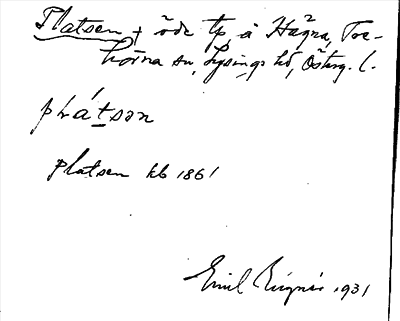 Platsen + öde tp å Hägna, Tre-
hörna sn, Lysings hd, Österg. l.
plátsən
Platsen kb 1861
Emil 1931